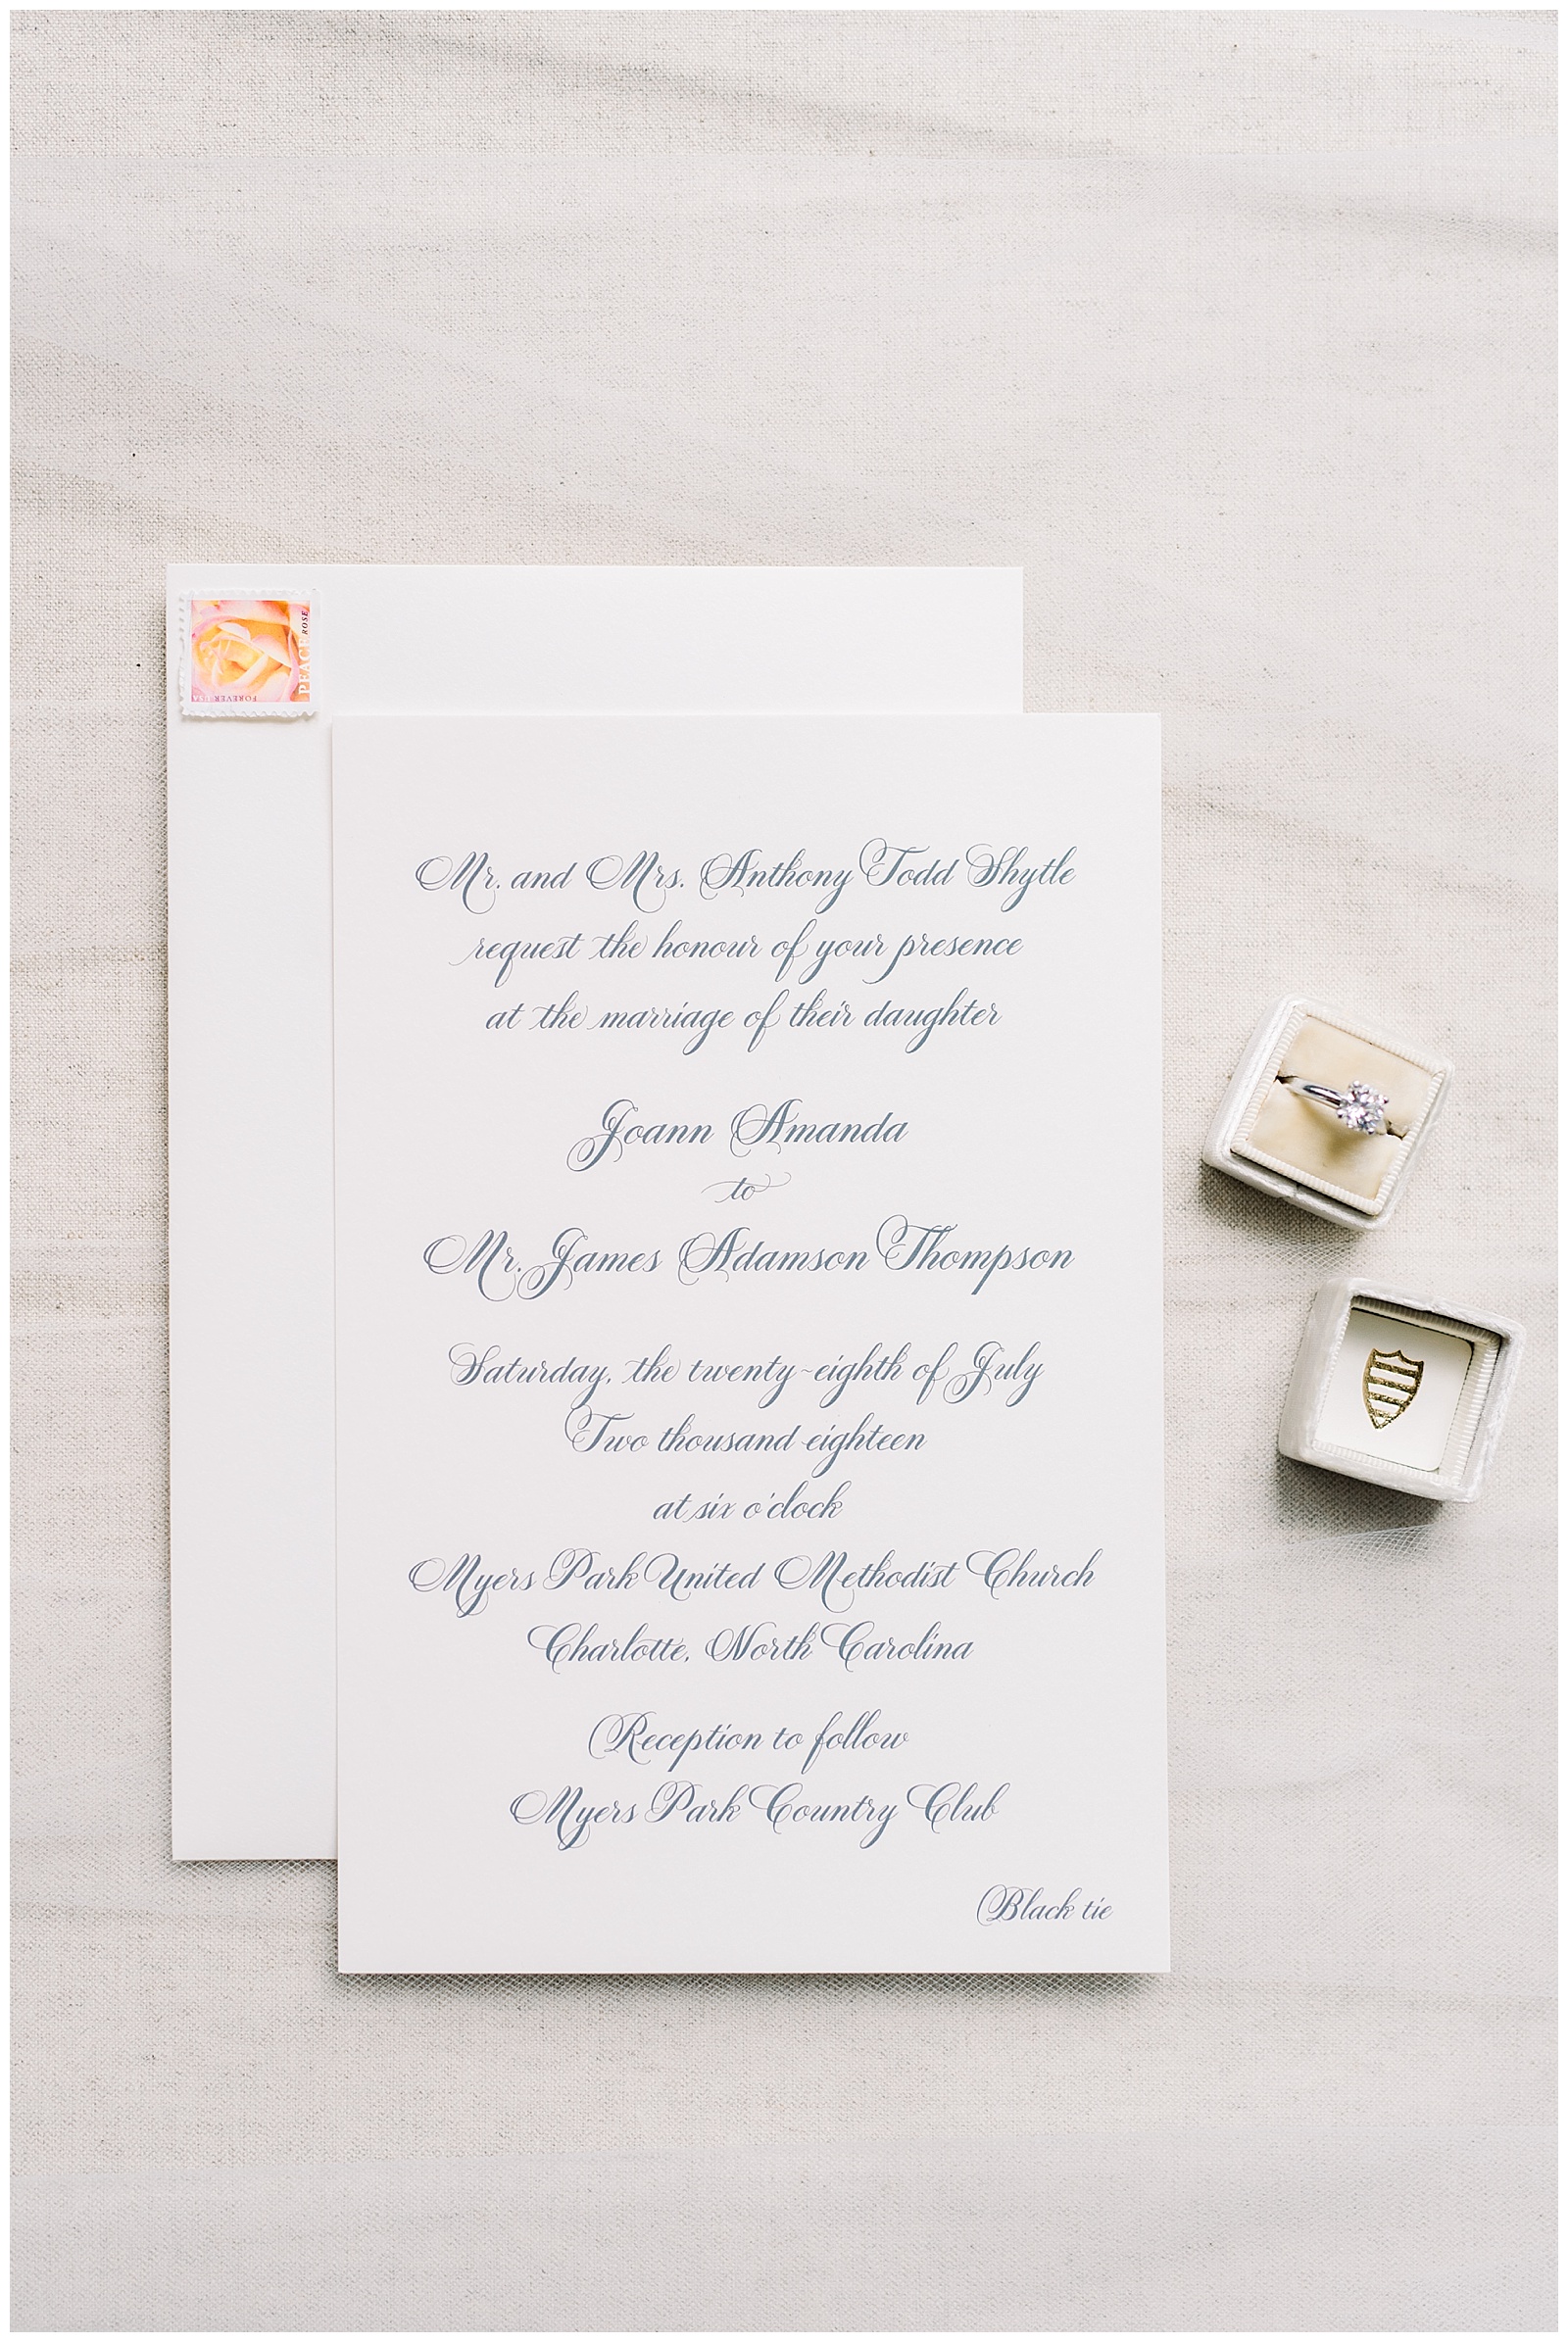 PEACE ROSE
FOREVER USA
Mr. and Mrs. Anthony Todd Shytle
request the honour of your presence
at the marriage of their daughter
Joann Amanda
to
Mr. James Adamson Thompson
Saturday, the twenty-eighth of July
Two thousand eighteen
at six o'clock
Myers Park United Methodist Church
Charlotte, North Carolina
Reception to follow
Myers Park Country Club
Black tie